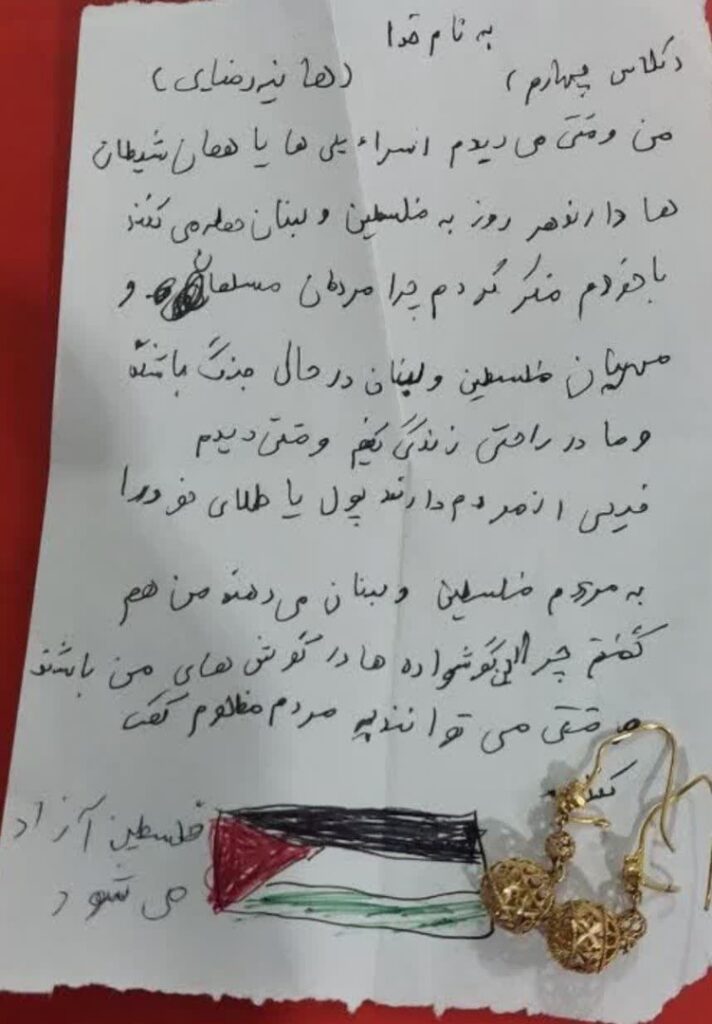 به نام خدا
(هانیه رضایی) (کلاس چهارم)
من وقتی می دیدم اسرائیلی ها یا همان شیطان
ها دارند هر روز به فلسطین و لبنان حمله می کنند
با خودم فکر کردم چرا مردمان مسلمان و
مهربان فلسطین و لبنان در حال جنگ باشند
و ما در راحتی زندگی کنیم وقتی دیدم
خیلی از مردم دارند پول یا طلای خود را
به مردم فلسطین و لبنان می دهند من هم
گفتم چرا الی گوشواده ها در گوش های من باشند
وقتی می توانند به مردم مظلوم کمک
کنند
فلسطین آزاد
می شود